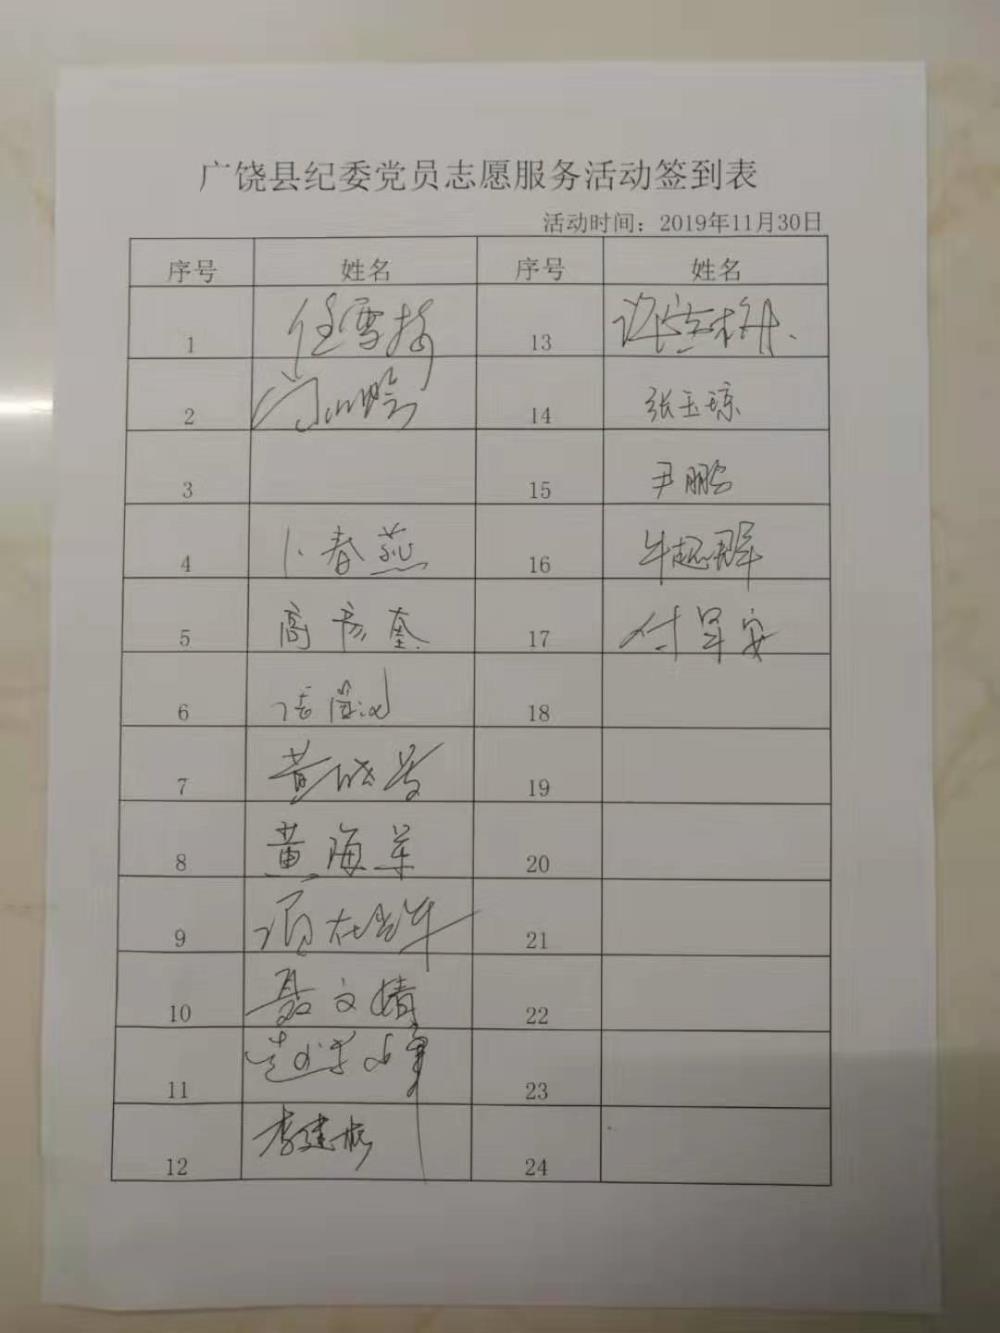 广饶县纪委党员志愿服务活动签到表
活动时间：2019年11月30日
序号 姓名 序号 姓名
1 任雪梅 13
2 14 张玉琼
3 15 尹鹏
4 卜春燕 16
5 高彦奎 17 付军安
6 18
7 黄晓芳 19
8 黄海军 20
9 21
10 聂文婧 22
11 23
12 李建 24